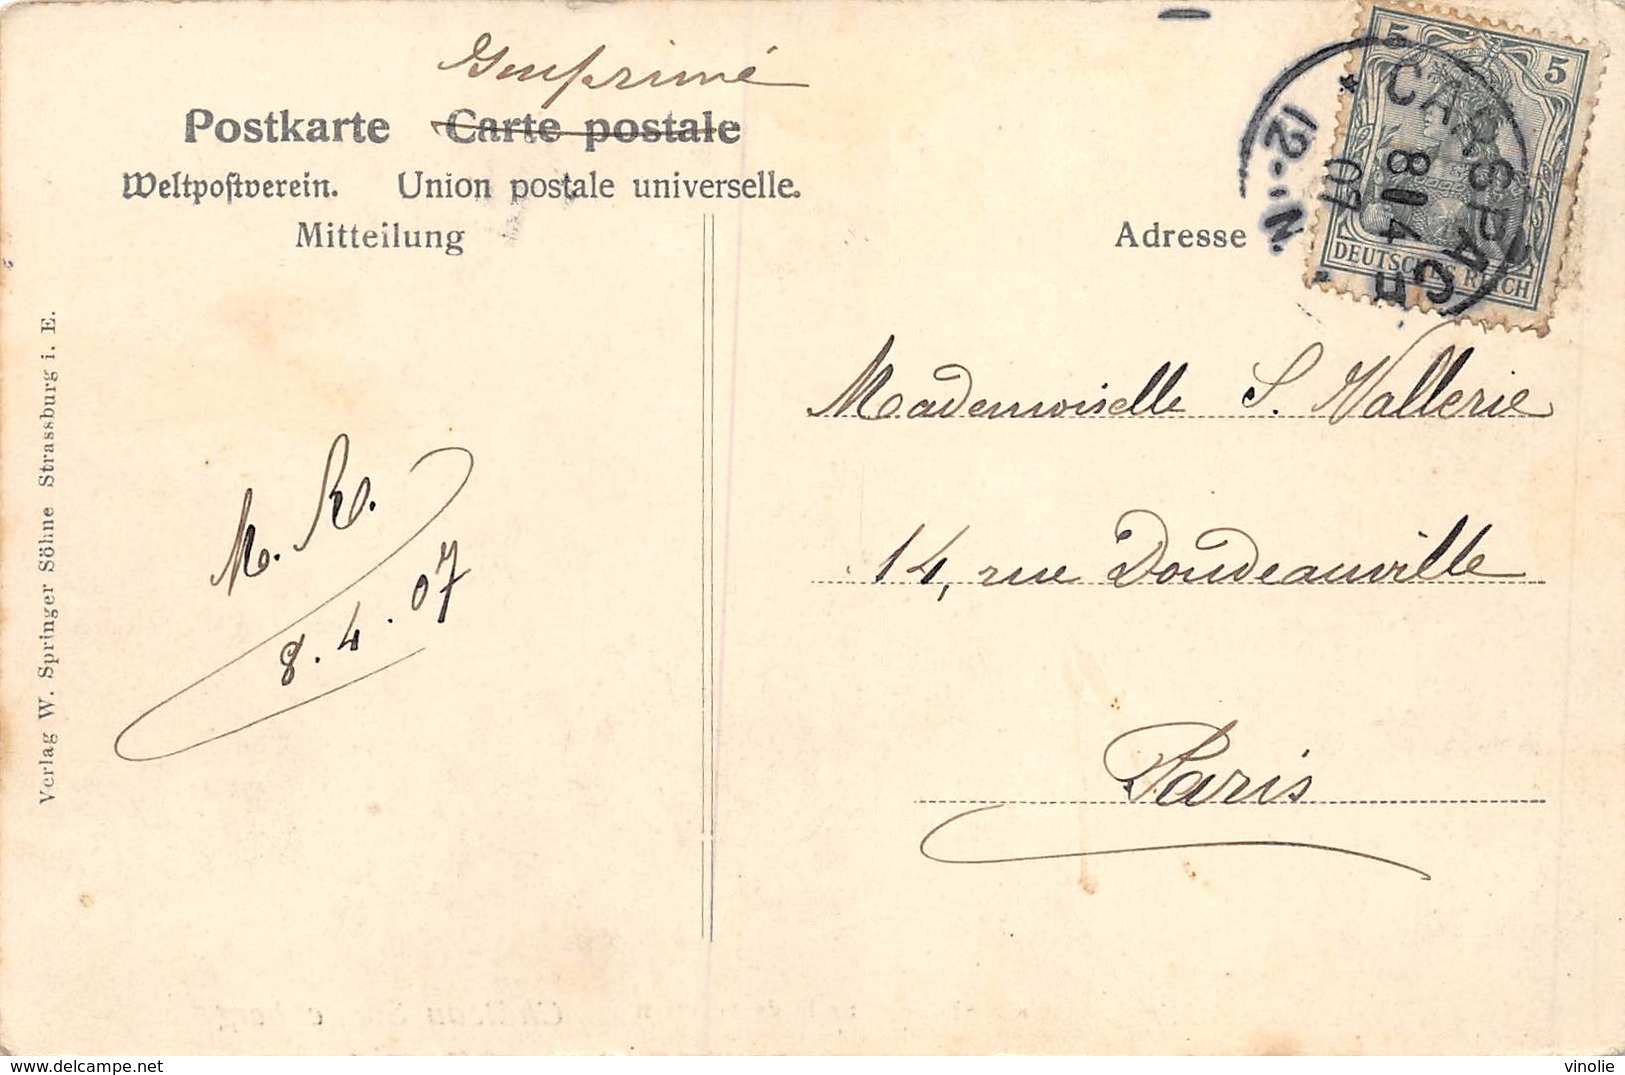 Imprimé
Postkarte Carte postale
Weltpostverein. Union postale universelle.
Mitteilung
Adresse
5 5
DEUTSCHES REICH
CARSPACH
8 4
07
12-1N.
Mademoiselle S. Vallerie
14, rue Doudeauville
Paris
M. R.
8.4.07
Verlag W. Springer Söhne Strassburg i. E.
vinolie